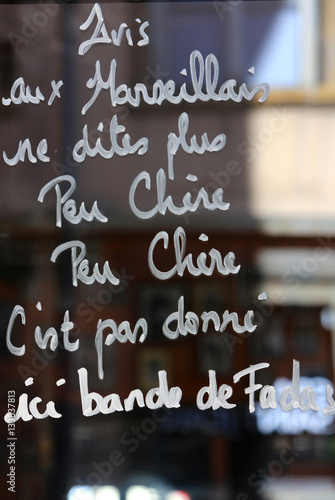 Avis
aux Marseillais
ne dites plus
Peu Chère
Peu Chère
C'est pas donné
ici bande de Fadas